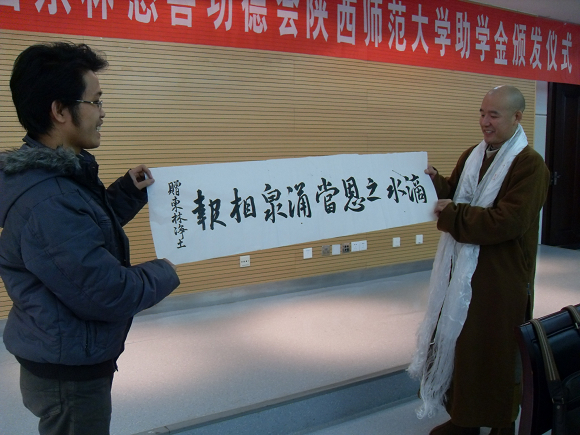 东林慈善功德会陕西师范大学助学金颁发仪式
滴水之恩當涌泉相報
贈東林淨土